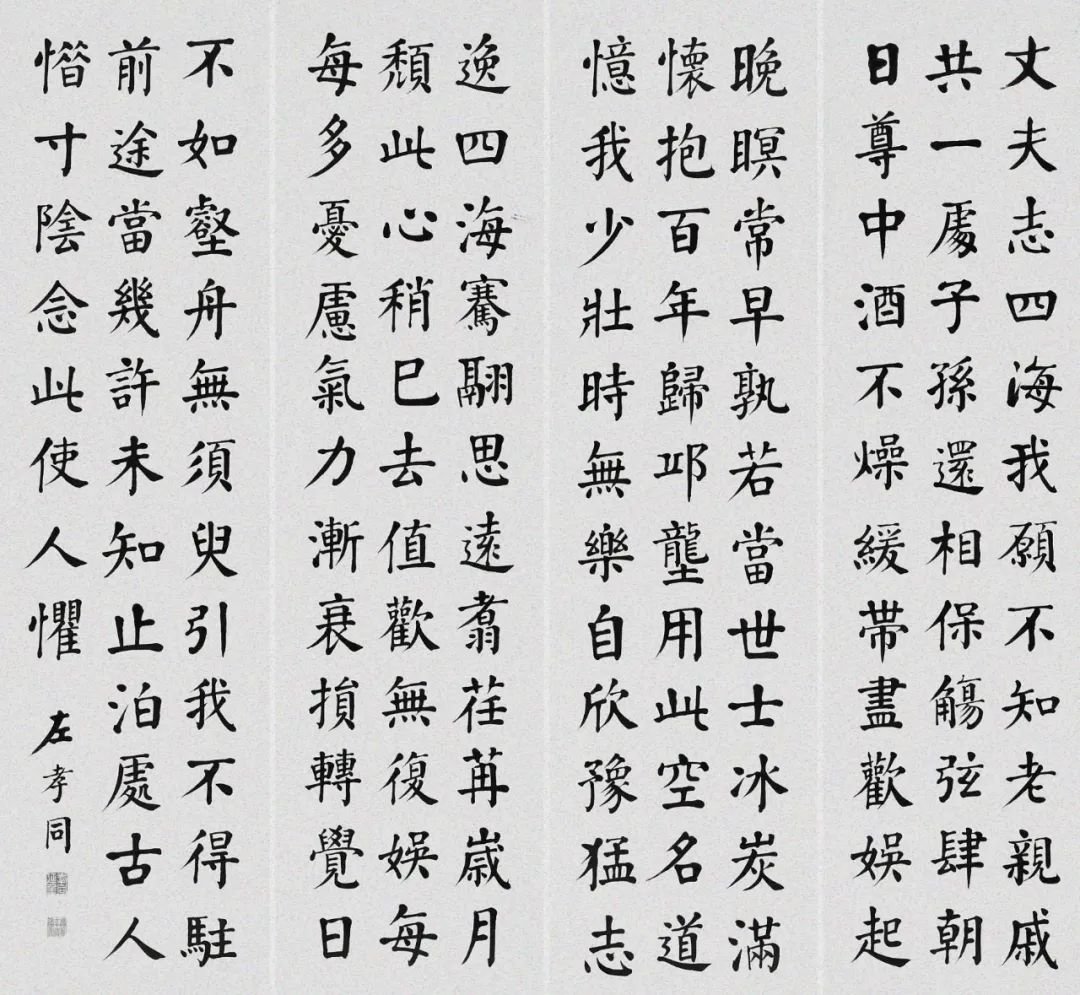 丈夫志四海我願不知老親戚
共一處子孫還相保觴弦肆朝
日尊中酒不燥緩帶盡歡娛起
晚瞑常早孰若當世士冰炭滿
懷抱百年歸邱壟用此空名道
憶我少壯時無樂自欣豫猛志
逸四海騫翮思遠翥荏苒歲月
頹此心稍已去值歡無復娛每
每多憂慮氣力漸衰損轉覺日
不如壑舟無須臾引我不得駐
前途當幾許未知止泊處古人
惜寸陰念此使人懼
左孝同